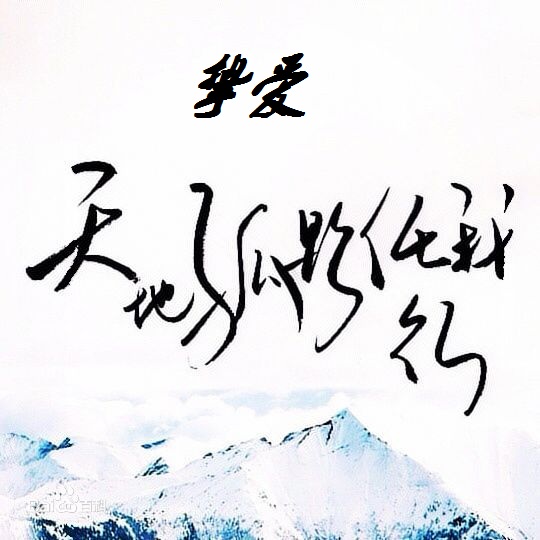 挚爱
天地孤影任我
行
Baidu百科